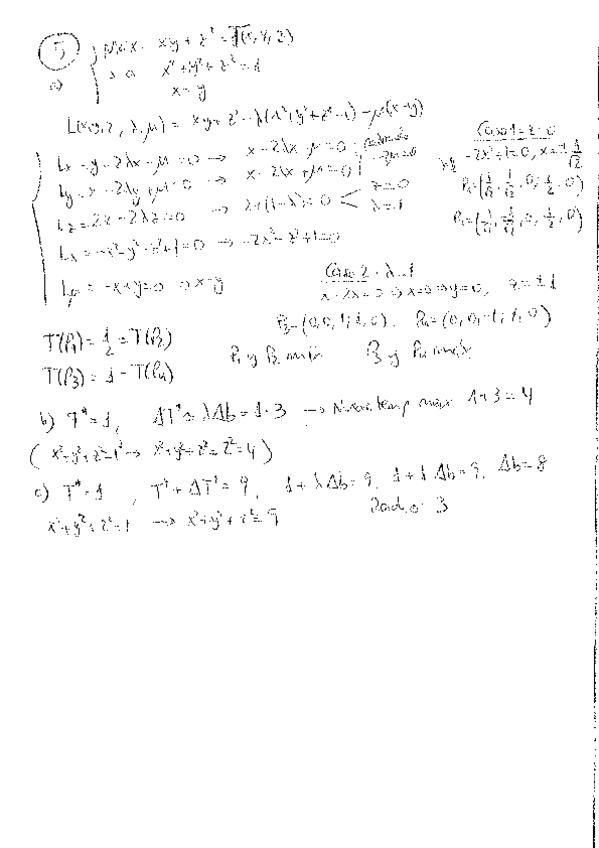 5)
a) Max. xy + z² = T(x,y,z)
s.a x² + y² + z² = 1
x = y
L(x,y,z,λ,μ) = xy + z² - λ(x² + y² + z² - 1) - μ(x - y)
Lx = y - 2λx - μ = 0 → x - 2λx - μ = 0
Ly = x - 2λy + μ = 0 → x - 2λx + μ = 0
Lz = 2z - 2λz = 0 → z(1 - λ) = 0 < z = 0
λ = 1
Lλ = -x² - y² - z² + 1 = 0 → -2x² - z² + 1 = 0
Lμ = -x + y = 0 x = y
Caso 1 = z = 0
-2x² + 1 = 0, x = ± 1/√2
P₁ = (1/√2, 1/√2, 0, 1/2, 0)
P₂ = (-1/√2, -1/√2, 0, 1/2, 0)
Caso 2 · λ = 1
x - 2x = 0 → x = 0 → y = 0, z = ± 1
P₃ = (0, 0, 1, 1, 0). P₄ = (0, 0, -1, 1, 0)
T(P₁) = 1/2 = T(P₂)
P₁ y P₂ min P₃ y P₄ max
T(P₃) = 1 = T(P₄)
b) T* = 1, ΔT* ≈ λΔb = 1·3 → Nueva temp max 1 + 3 = 4
(x² + y² + z² = 1² → x² + y² + z² = 2² = 4)
c) T* = 1, T* + ΔT* = 9, 1 + λΔb = 9, 1 + 1 Δb = 9, Δb = 8
x² + y² + z² = 1 → x² + y² + z² = 9 Radio 3